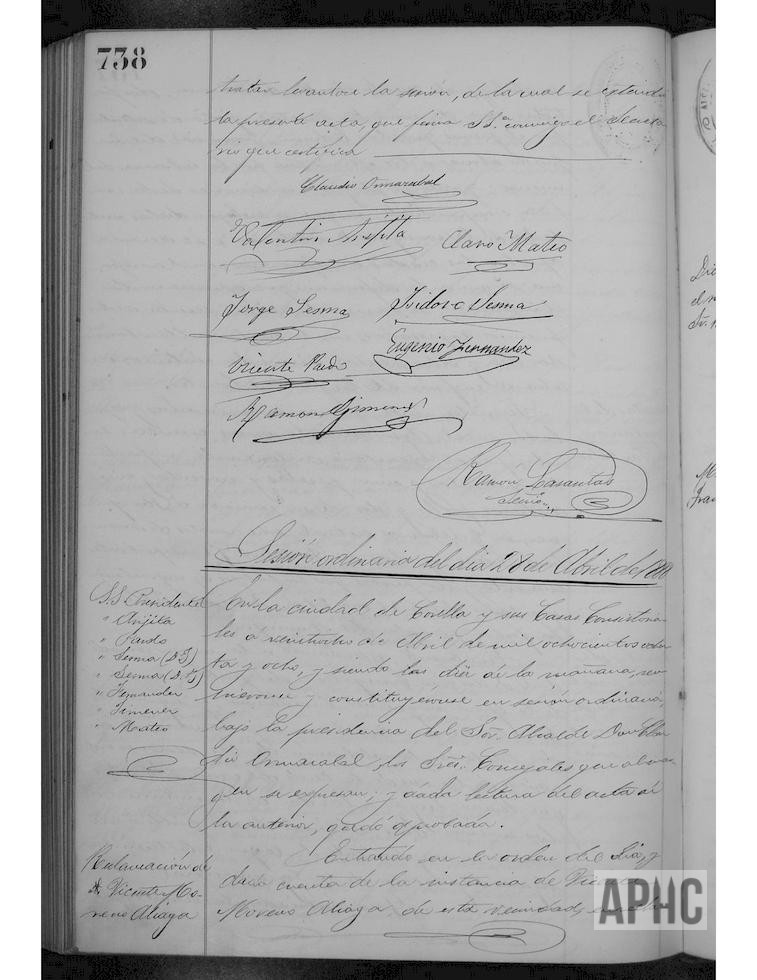 738
tratar levantose la sesión, de la cual se extiende
la presente acta, que firma S.S.ª conmigo el Secreta-
rio que certifica
Claudio Omarabal
Valentin Arijita
Claro Mateo
Jorge Sesma
Isidoro Sesma
Vicente Pardo
Eugenio Fernandez
Ramon Gimenez
Ramon Lasantas
Sesión ordinaria del dia 28 de Abril de 1888
S.S. Presidente
" Arijita
" Pardo
" Sesma (D. J)
" Sesma (D. Y)
" Fernandez
" Jimenez
" Mateo
En la ciudad de Corella y sus Casas Consistoria-
les á veintiocho de Abril de mil ochocientos ochen-
ta y ocho, y siendo las diez de la mañana, reu-
nieronse y constituyéronse en sesión ordinaria,
bajo la presidencia del Sor. Alcalde Don Clau-
dio Omarabal, los Sres. Concejales que al mar-
gen se expresan; y dada lectura del acta de
la anterior, quedó aprobada.
Reclamación de
Vicente Mo-
reno Aliaga
Entrando en la orden del dia, y
dada cuenta de la instancia de Vicente
Moreno Aliaga, de esta vecindad,
APHC